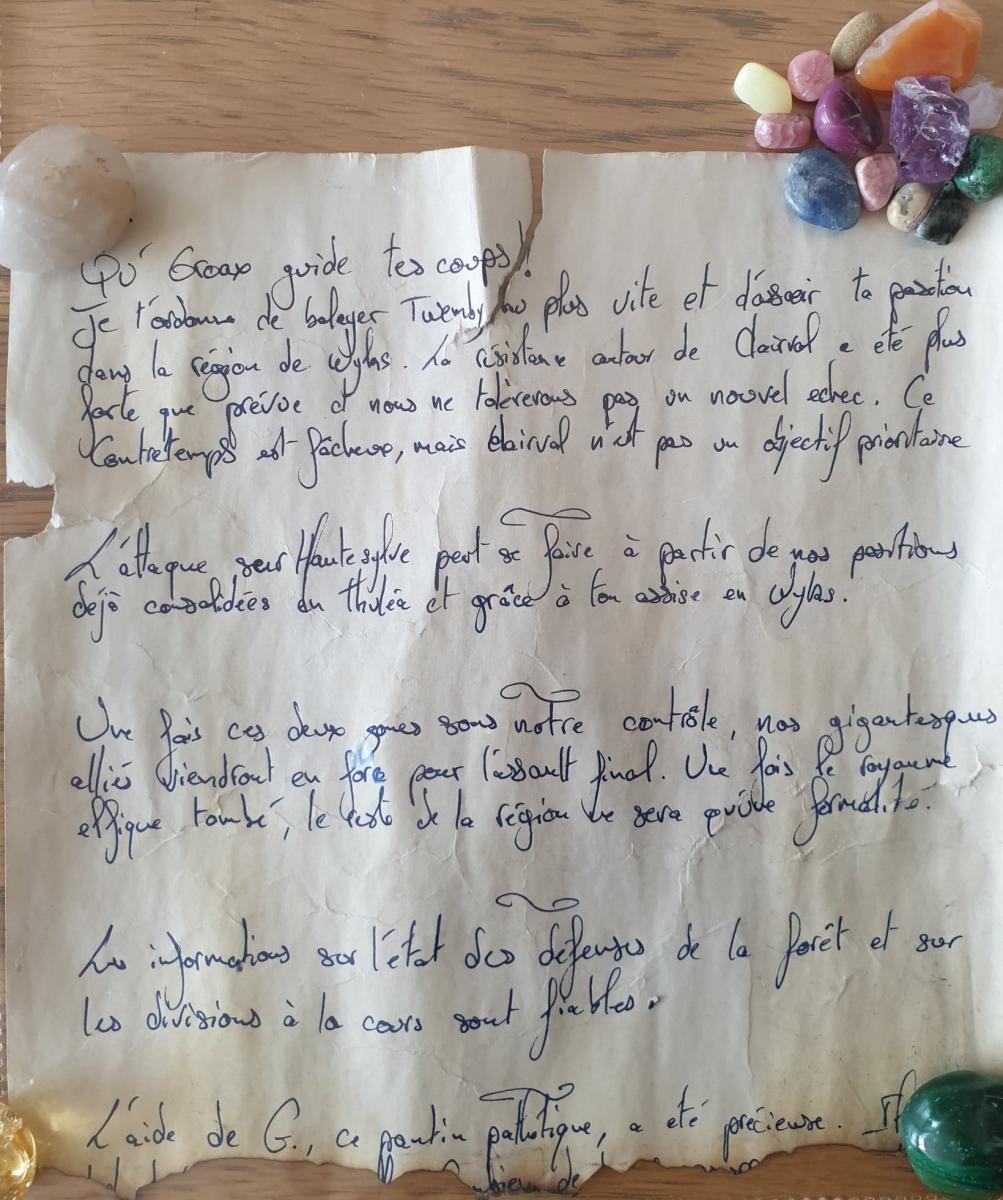 Qu' Groax guide tes coups!
Je t'ordonne de balayer Twemby au plus vite et d'asseoir ta position
dans la région de Wylas. La résistance autour de Clairval a été plus
forte que prévue et nous ne tolèrerons pas un nouvel echec. Ce
Contretemps est fâcheux, mais Clairval n'est pas un objectif prioritaire
L'attaque sur Hautesylve peut se faire à partir de nos positions
déjà consolidées en Thuléa et grâce à ton assise en Wylas.
Une fois ces deux zones sous notre contrôle, nos gigantesques
alliés viendront en force pour l'assault final. Une fois le royaume
elfique tombé, le reste de la région ne sera qu'une formalité.
Les informations sur l'état des défenses de la forêt et sur
les divisions à la cours sont fiables.
L'aide de G., ce pantin pathétique, a été précieuse. Il
de